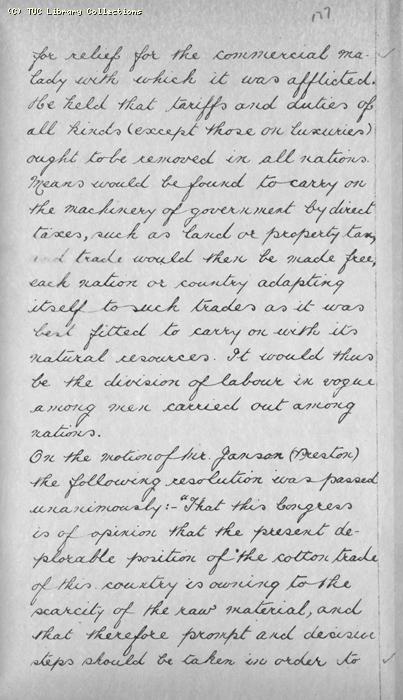 (C) TUC Library Collections
177
for relief for the commercial ma-
lady with which it was afflicted.
He held that tariffs and duties of
all kinds (except those on luxuries)
ought to be removed in all nations.
Means would be found to carry on
the machinery of government by direct
taxes, such as land or property tax,
and trade would then be made free,
each nation or country adapting
itself to such trades as it was
best fitted to carry on with its
natural resources. It would thus
be the division of labour in vogue
among men carried out among
nations.
On the motion of Mr. Janson (Preston)
the following resolution was passed
unanimously:- "That this Congress
is of opinion that the present de-
plorable position of the cotton trade
of this country is owning to the
scarcity of the raw material, and
that therefore prompt and decisive
steps should be taken in order to